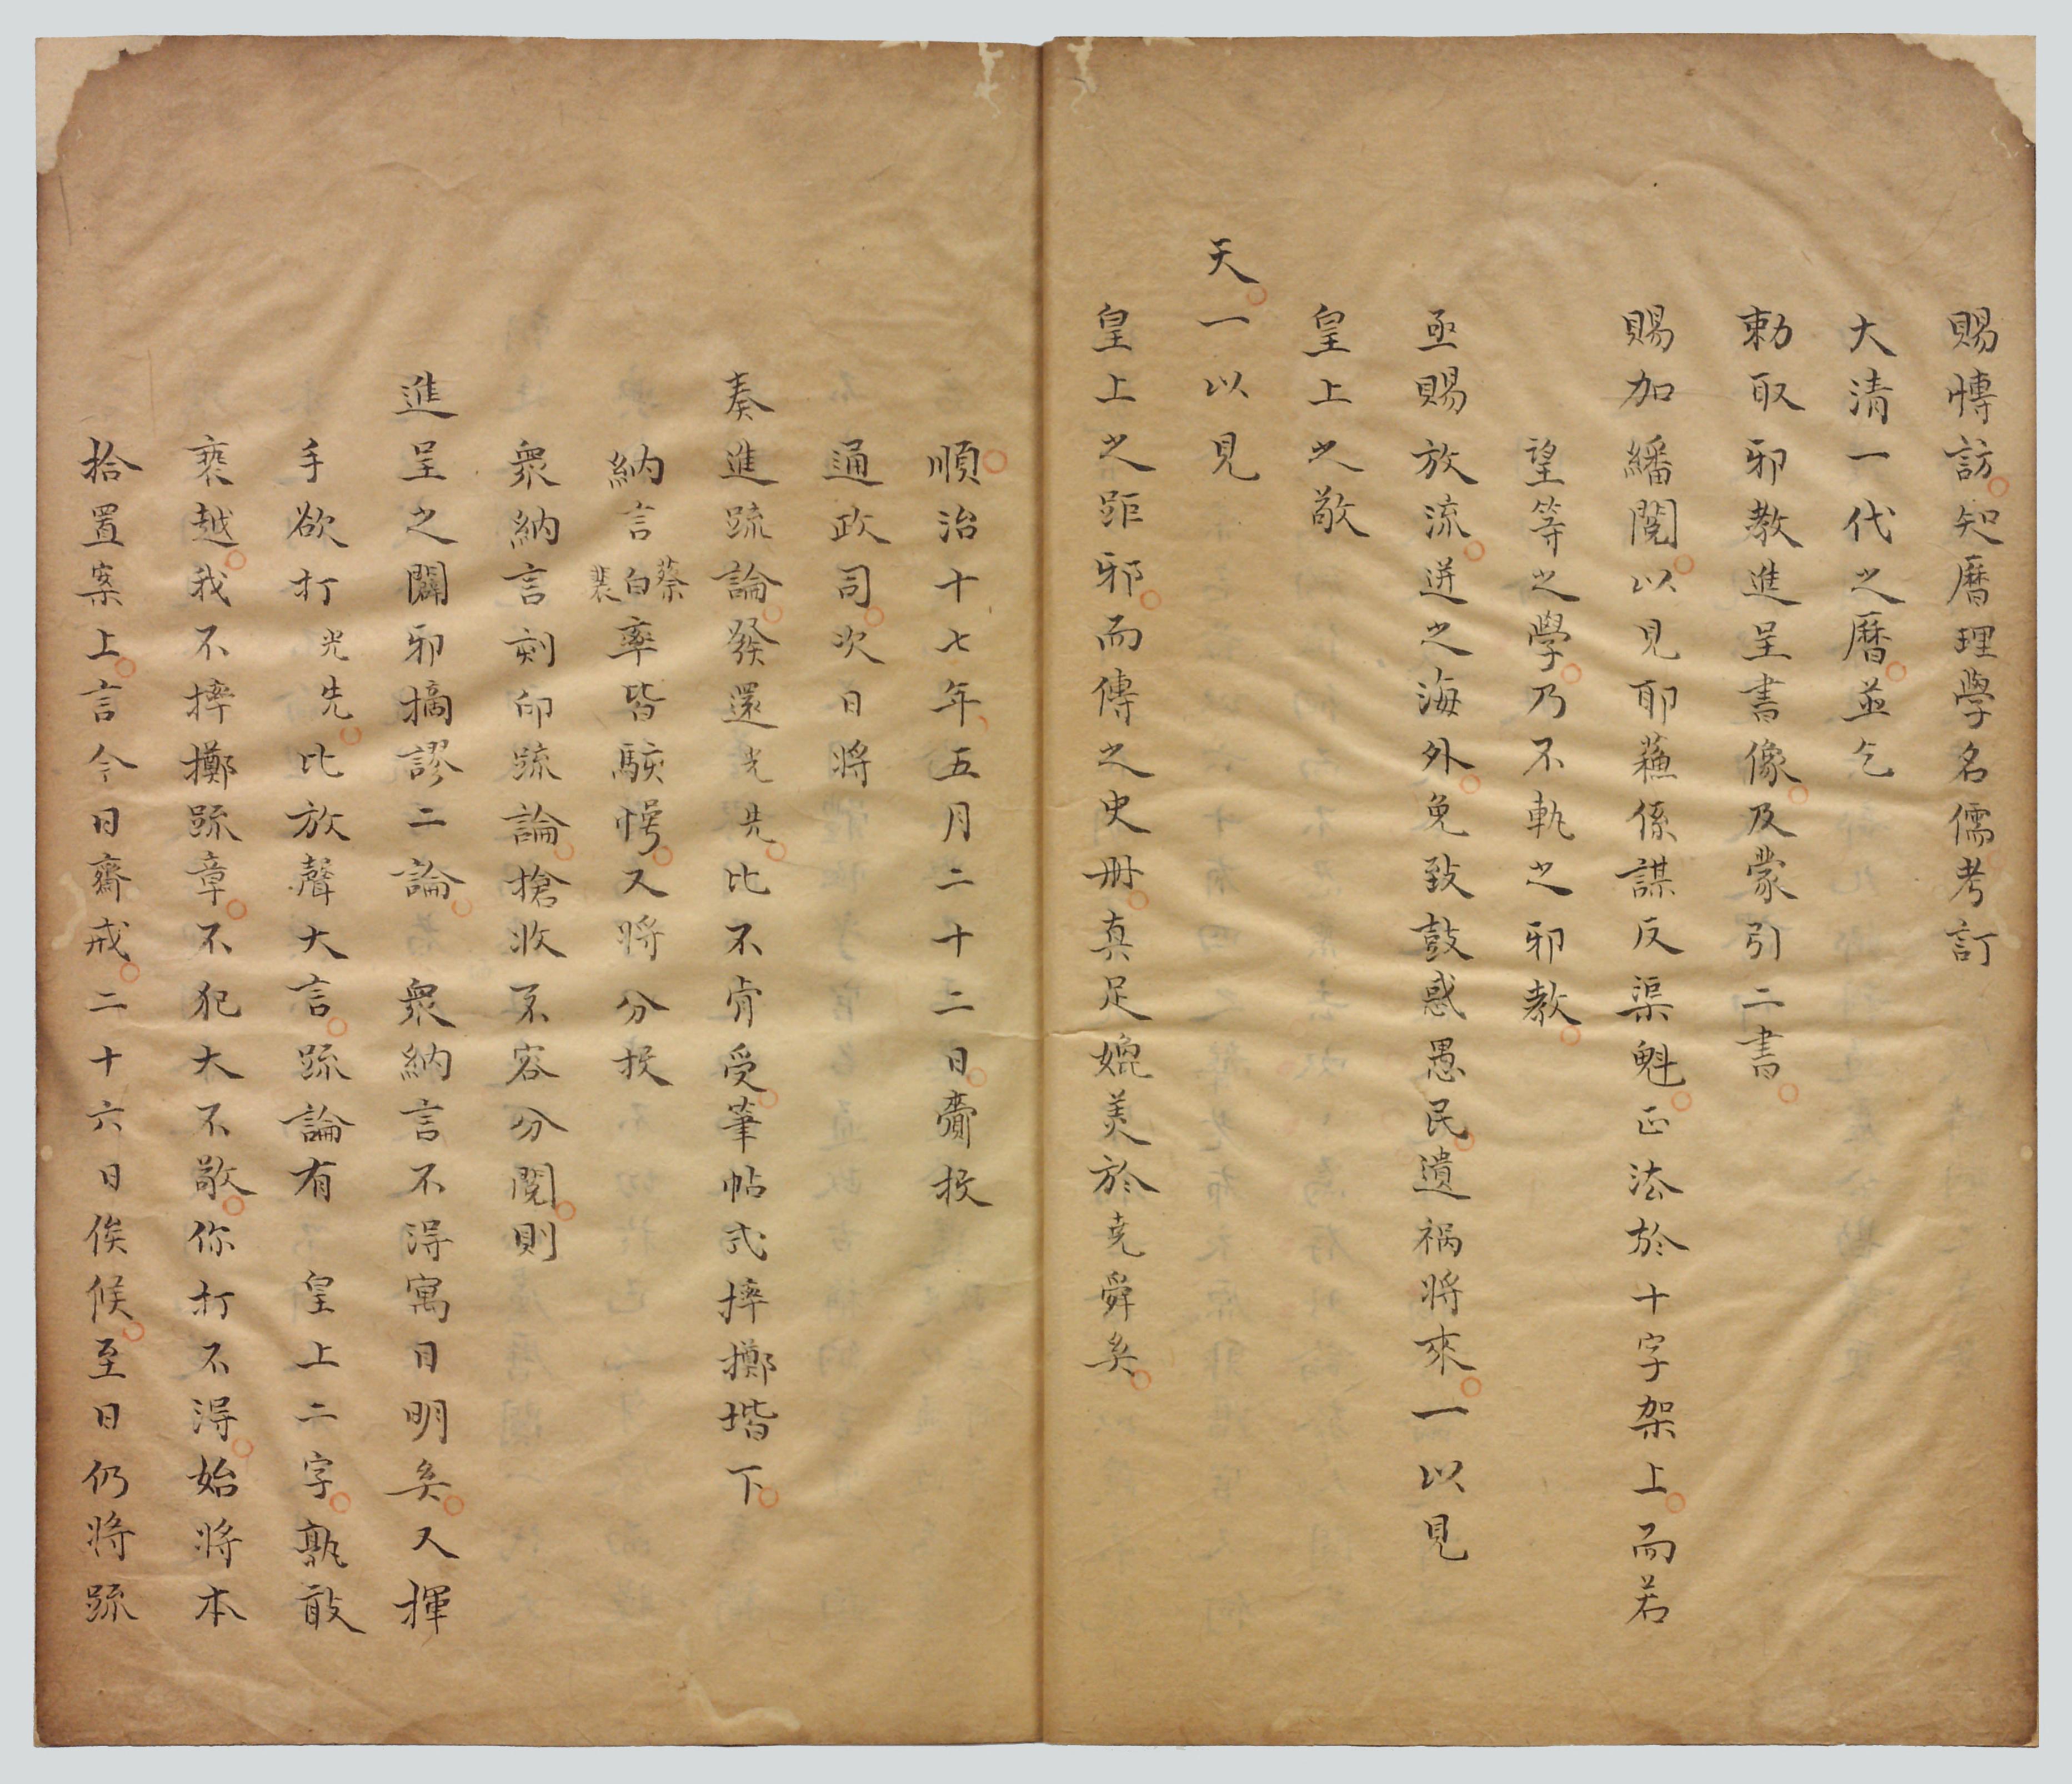 賜博訪知曆理學名儒考訂
大清一代之曆並乞
勅取邪教進呈書像及蒙引二書
賜加繙閱以見耶蘓係謀反渠魁正法於十字架上而若
望等之學乃不軌之邪教
亟賜放流迸之海外免致鼓惑愚民遺禍將來一以見
皇上之敬
天一以見
皇上之距邪而傳之史冊真足媲美於堯舜矣
順治十七年五月二十二日齎投
通政司次日將
奏進䟽論發還光先比不肯受筆帖式摔擲堦下
納言蔡白裴率皆駭愕又將分投
衆納言刻印䟽論搶收不容分閱則
進呈之闢邪摘謬二論衆納言不得寓目明矣又揮
手欲打光先比放聲大言䟽論有皇上二字孰敢
褻越我不摔擲䟽章不犯大不敬你打不得始將本
拾置案上言今日齋戒二十六日俟候至日仍將䟽